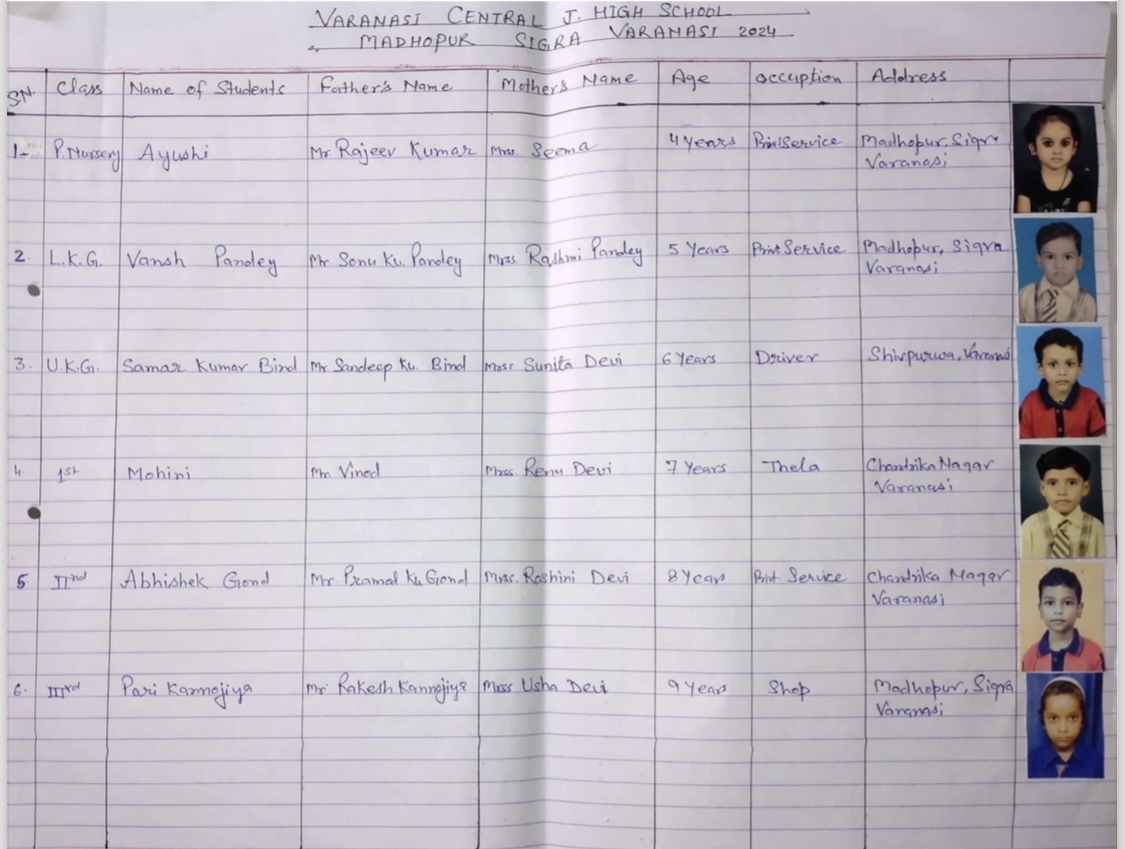 VARANASI CENTRAL J. HIGH SCHOOL
MADHOPUR SIGRA VARANASI 2024
SN. Class Name of Students Father's Name Mother's Name Age Occuption Address
1- P.Nursery Ayushi Mr Rajeev Kumar Mrs. Seema 4 Years Privt Service Madhopur, Sigra
Varanasi
2. L.K.G. Vansh Pandey Mr Sonu Ku. Pandey Mrss Rashmi Pandey 5 Years Privt Service Madhopur, Sigra
Varanasi
3. U.K.G. Samar Kumar Bind Mr Sandeep Ku. Bind Sunita Devi 6 Years Driver Shivpurwa, Varanasi
4. 1st Mohini Mr. Vinod Mrss. Renu Devi 7 Years Thela Chandrika Nagar
Varanasi
5 IInd Abhishek Gond Mr. Ku Gond Mrss. Roshini Devi 8 Years Privt Service Chandrika Nagar
Varanasi
6. IIIrd Pari Kannojiya Mr Rakesh Kannojiya Mrss Usha Devi 9 Years Shop Madhopur, Sigra
Varanasi